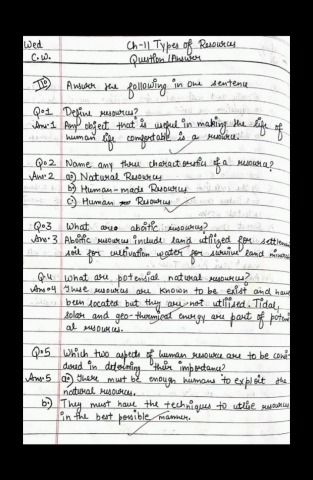 Wed Ch-11 Types of Resources
C.W. Question/Answer
III Answer the following in one sentence
Q.1 Define resources?
Ans.1 Any object that is useful in making the life of
human life comfortable is a resource.
Q.2 Name any three characteristic of a resource?
Ans.2 a) Natural Resources
b) Human-made Resources
c) Human Resources
Q.3 What are abiotic resources?
Ans.3 Abiotic resources include land utilized for settlem
soil for cultivation water for survive land
Q.4 What are potensial natural resources?
Ans.4 These resources are known to be exist and have
been located but they are not utilised. Tidal,
solar and geo-thermical energy are part of potent
al resources.
Q.5 Which two aspects of human resource are to be consi
dered in their importance?
Ans.5 a) there must be enough humans to exploit the
natural resources.
b) They must have the techniques to utilise resources
in the best possible manner.